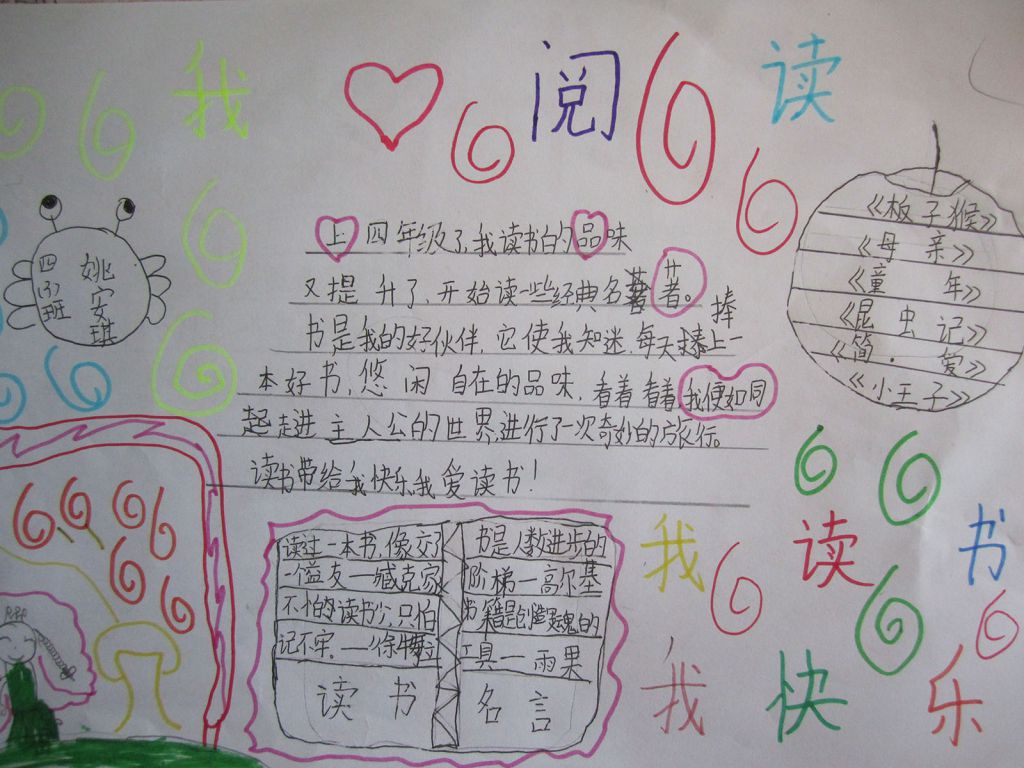 我 阅 读
四(3)班
姚安琪
上四年级了,我读书的品味
又提升了,开始读一些经典名著。
书是我的好伙伴,它使我知迷,每天捧上一
本好书,悠闲自在的品味,看着看着我便如同
起走进主人公的世界,进行了一次奇妙的旅行。
读书带给我快乐,我爱读书!
《板子猴》
《母亲》
《童年》
《昆虫记》
《简·爱》
《小王子》
读过一本书,像交了
一个益友—臧克家
不怕读书少,只怕
记不牢.—徐特立
读书
书是人数进步的
阶梯—高尔基
书籍是创造灵魂的
工具—雨果
名言
我读书
我快乐